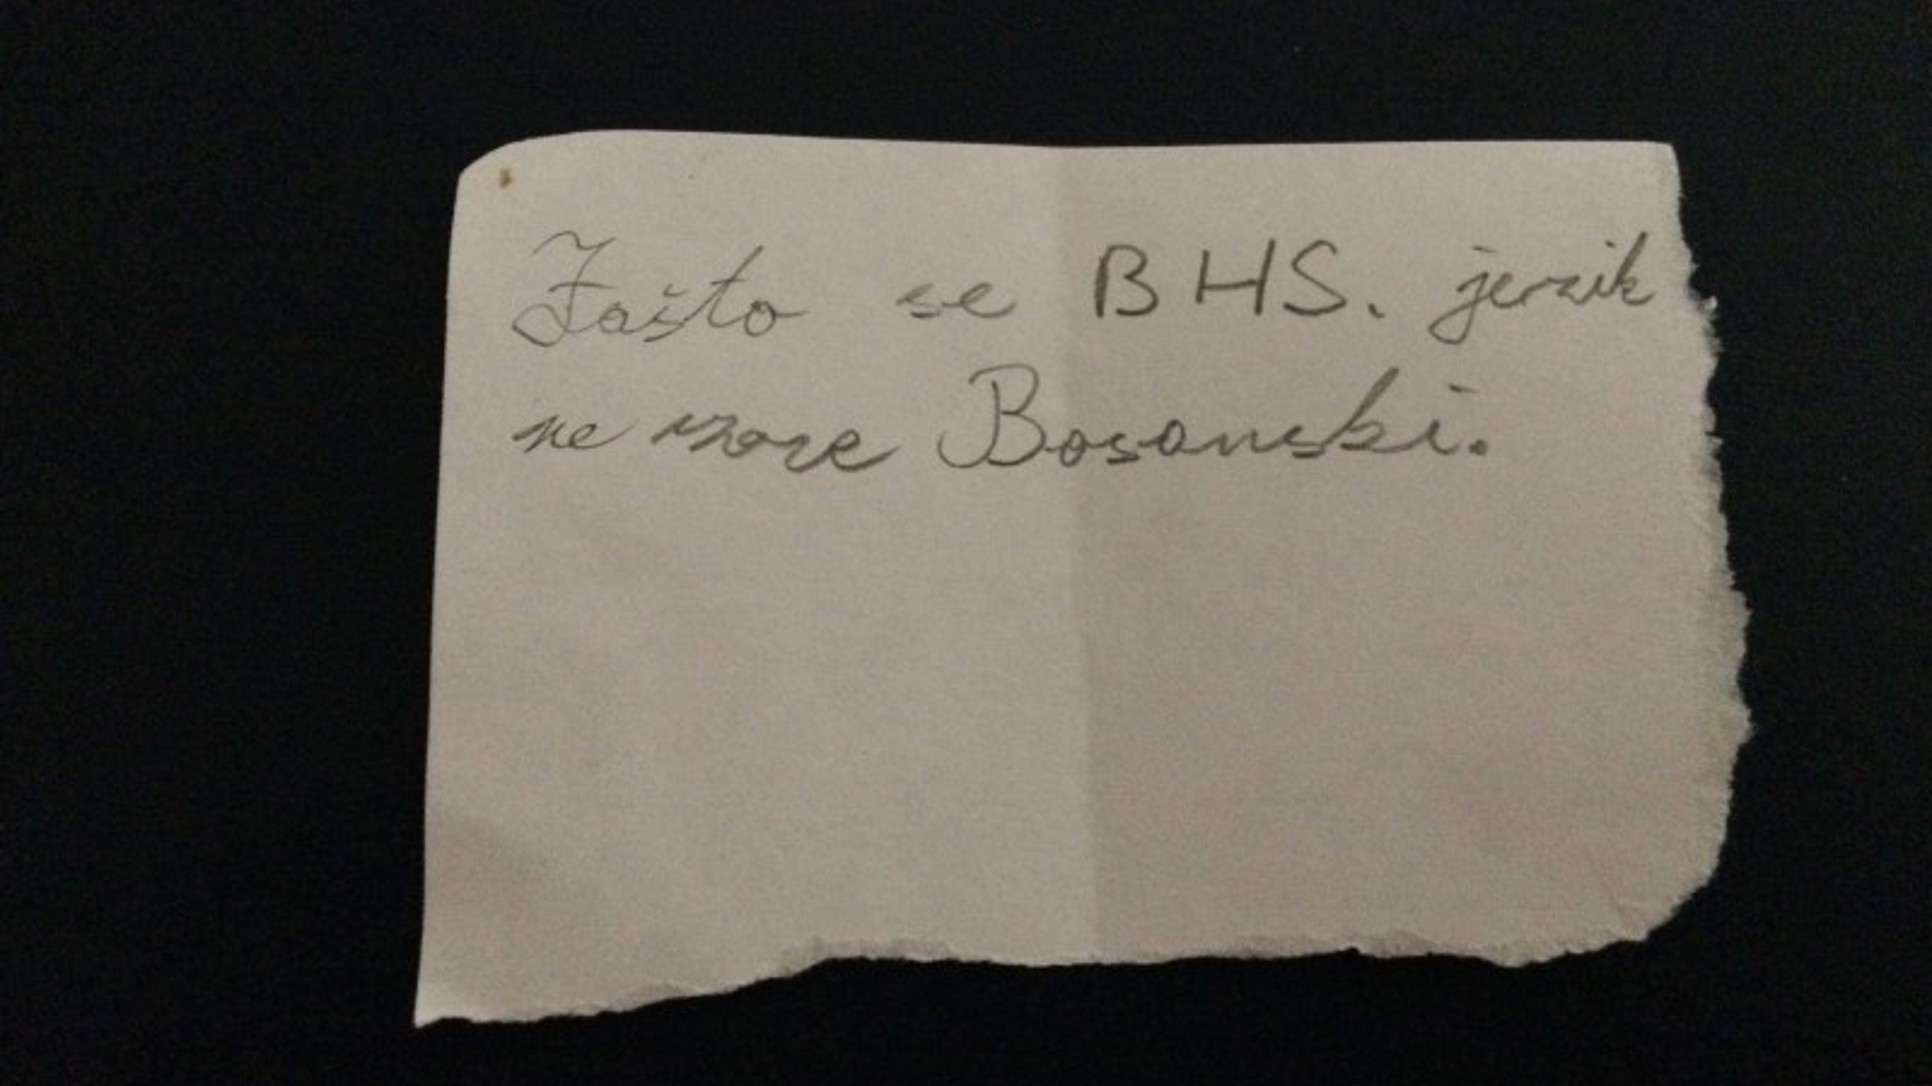 Zašto se BHS. jezik
ne zove Bosanski.